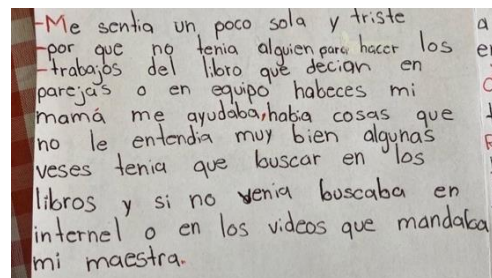 -Me sentia un poco sola y triste
-por que no tenia alguien para hacer los
-trabajos del libro que decian en
parejas o en equipo habeces mi
mamá me ayudaba, habia cosas que
no le entendia muy bien algunas
veses tenia que buscar en los
libros y si no venia buscaba en
internel o en los videos que mandaba
mi maestra.